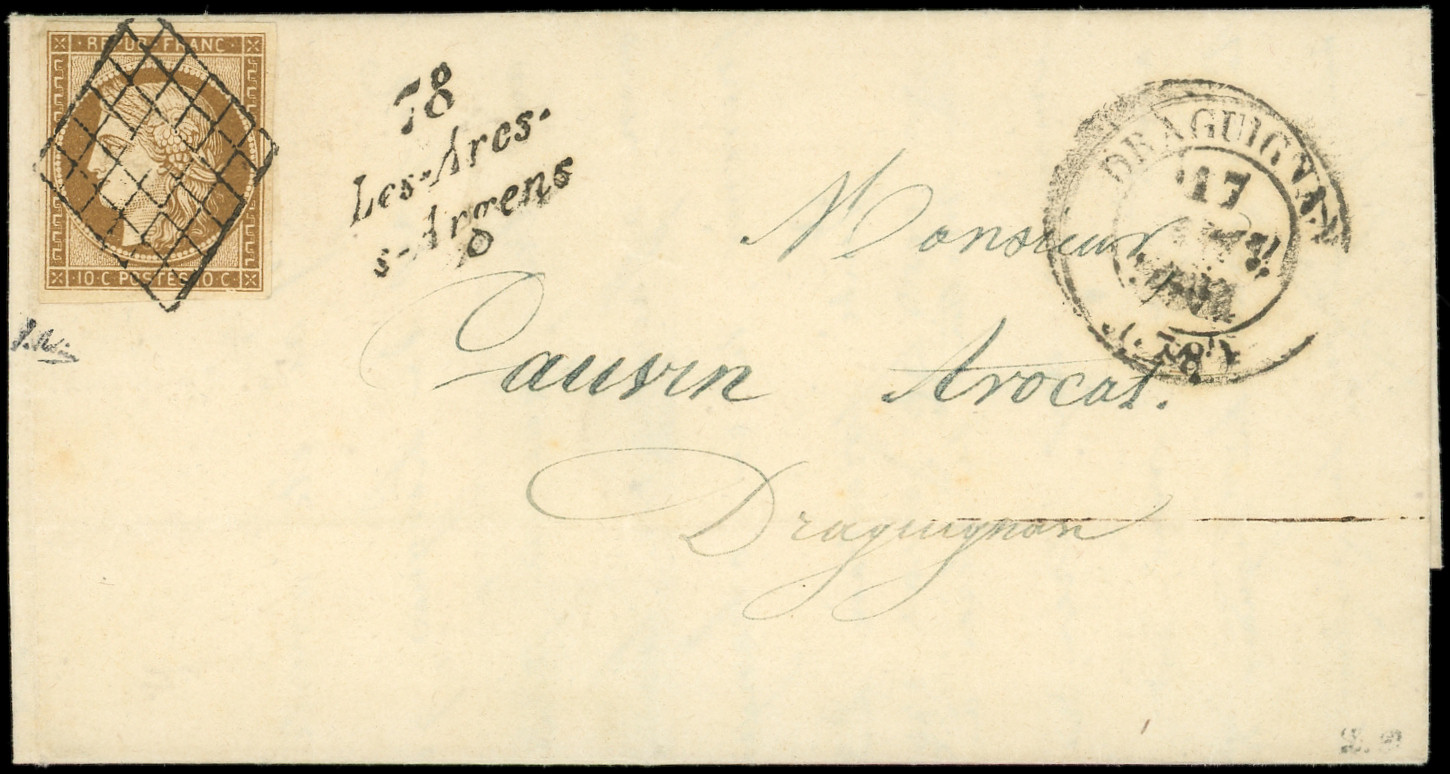 REPUB FRANC
10·C POSTES 10·C
78
Les-Arcs-
s-Argens
DRAGUIGNAN
17
(78)
Monsieur
Gauvin Avocat.
Draguignan